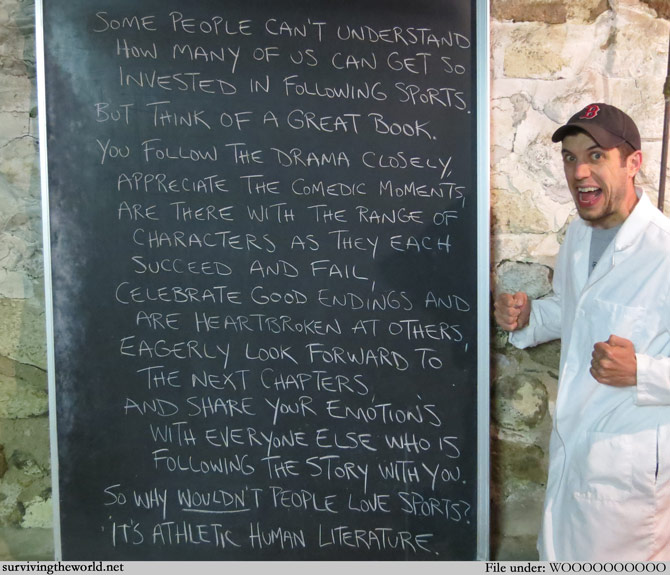 SOME PEOPLE CAN'T UNDERSTAND
HOW MANY OF US CAN GET SO
INVESTED IN FOLLOWING SPORTS.
BUT THINK OF A GREAT BOOK.
YOU FOLLOW THE DRAMA CLOSELY,
APPRECIATE THE COMEDIC MOMENTS,
ARE THERE WITH THE RANGE OF
CHARACTERS AS THEY EACH
SUCCEED AND FAIL,
CELEBRATE GOOD ENDINGS AND
ARE HEARTBROKEN AT OTHERS,
EAGERLY LOOK FORWARD TO
THE NEXT CHAPTERS,
AND SHARE YOUR EMOTIONS
WITH EVERYONE ELSE WHO IS
FOLLOWING THE STORY WITH YOU.
SO WHY WOULDN'T PEOPLE LOVE SPORTS?
IT'S ATHLETIC HUMAN LITERATURE.
B
survivingtheworld.net
File under: WOOOOOOOOOO